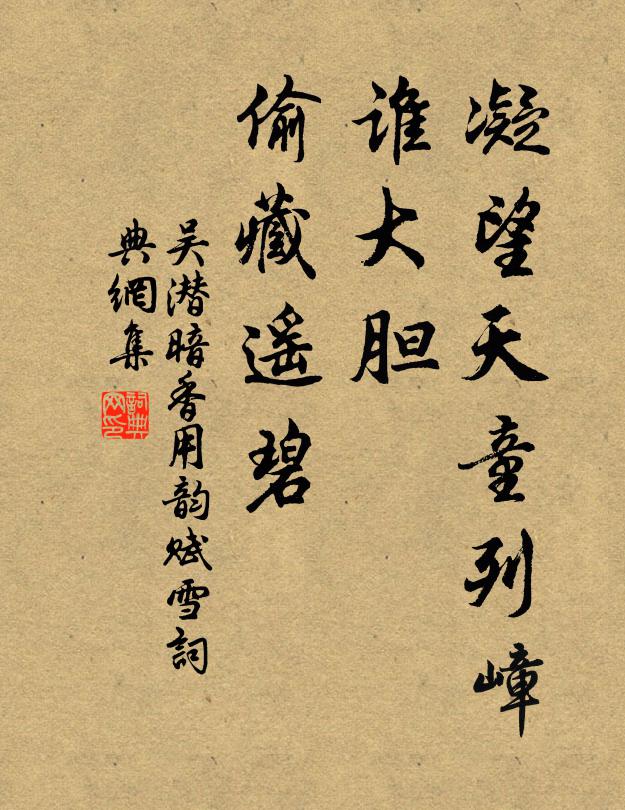 凝望天童列嶂
谁大胆
偷藏遥碧
吴潜暗香用韵赋雪詞
典網集
詞典网印